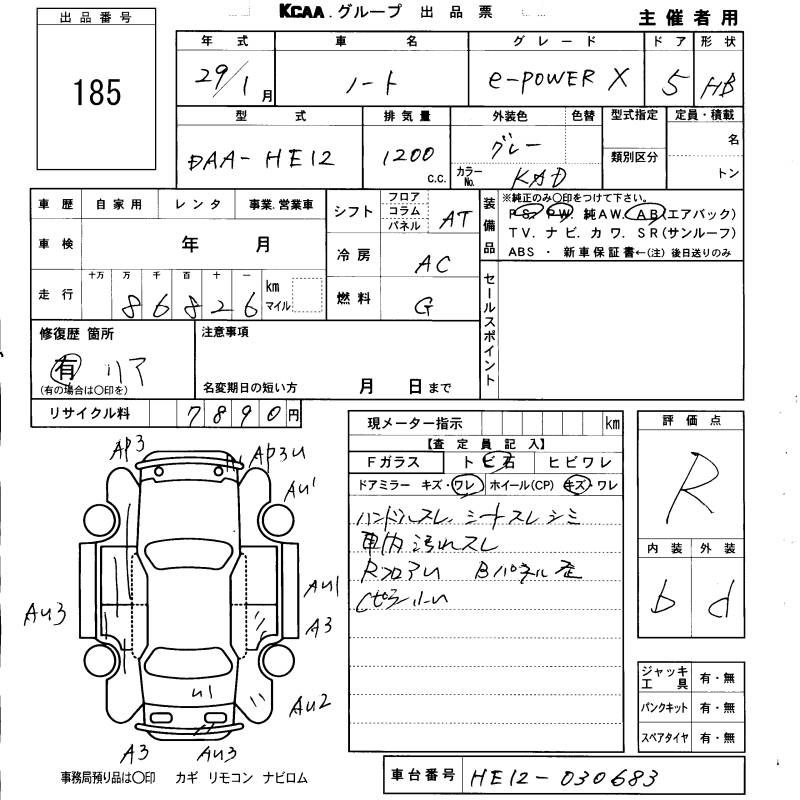 KCAA.グループ 出品票
主催者用
出品番号
185
年式 車名 グレード ドア 形状
29/1月 ノート e-POWER X 5 HB
型式 排気量 外装色 色替 型式指定 定員・積載
DAA-HE12 1200 c.c. グレー 類別区分 名
カラーNo. KAD トン
車歴 自家用 レンタ 事業.営業車
シフト フロア コラム パネル AT
装備品 ※純正のみ〇印をつけて下さい。
PS. PW. 純AW. AB(エアバック)
TV. ナビ. カワ. SR(サンルーフ)
ABS ・ 新車保証書←(注) 後日送りのみ
車検 年 月
冷房 AC
走行 十万 万 千 百 十 一
86826 km マイル
燃料 G
セールスポイント
修復歴 箇所
有 リア
(有の場合は〇印を)
注意事項
名変期日の短い方 月 日まで
リサイクル料 7890円
現メーター指示 km
【査定員記入】
Fガラス トビ石 ヒビワレ
ドアミラー キズ・ワレ ホイール(CP) キズ・ワレ
ハンドルスレ、シートスレシミ
車内汚れスレ
RフロアU Bパネル歪
Cピラー小U
評価点
R
内装 外装
b d
AP3 AP3U
AU1
AU1
AU3 A3
U1 AU2
A3 AU3
ジャッキ工具 有・無
パンクキット 有・無
スペアタイヤ 有・無
事務局預り品は〇印 カギ リモコン ナビロム
車台番号 HE12-030683